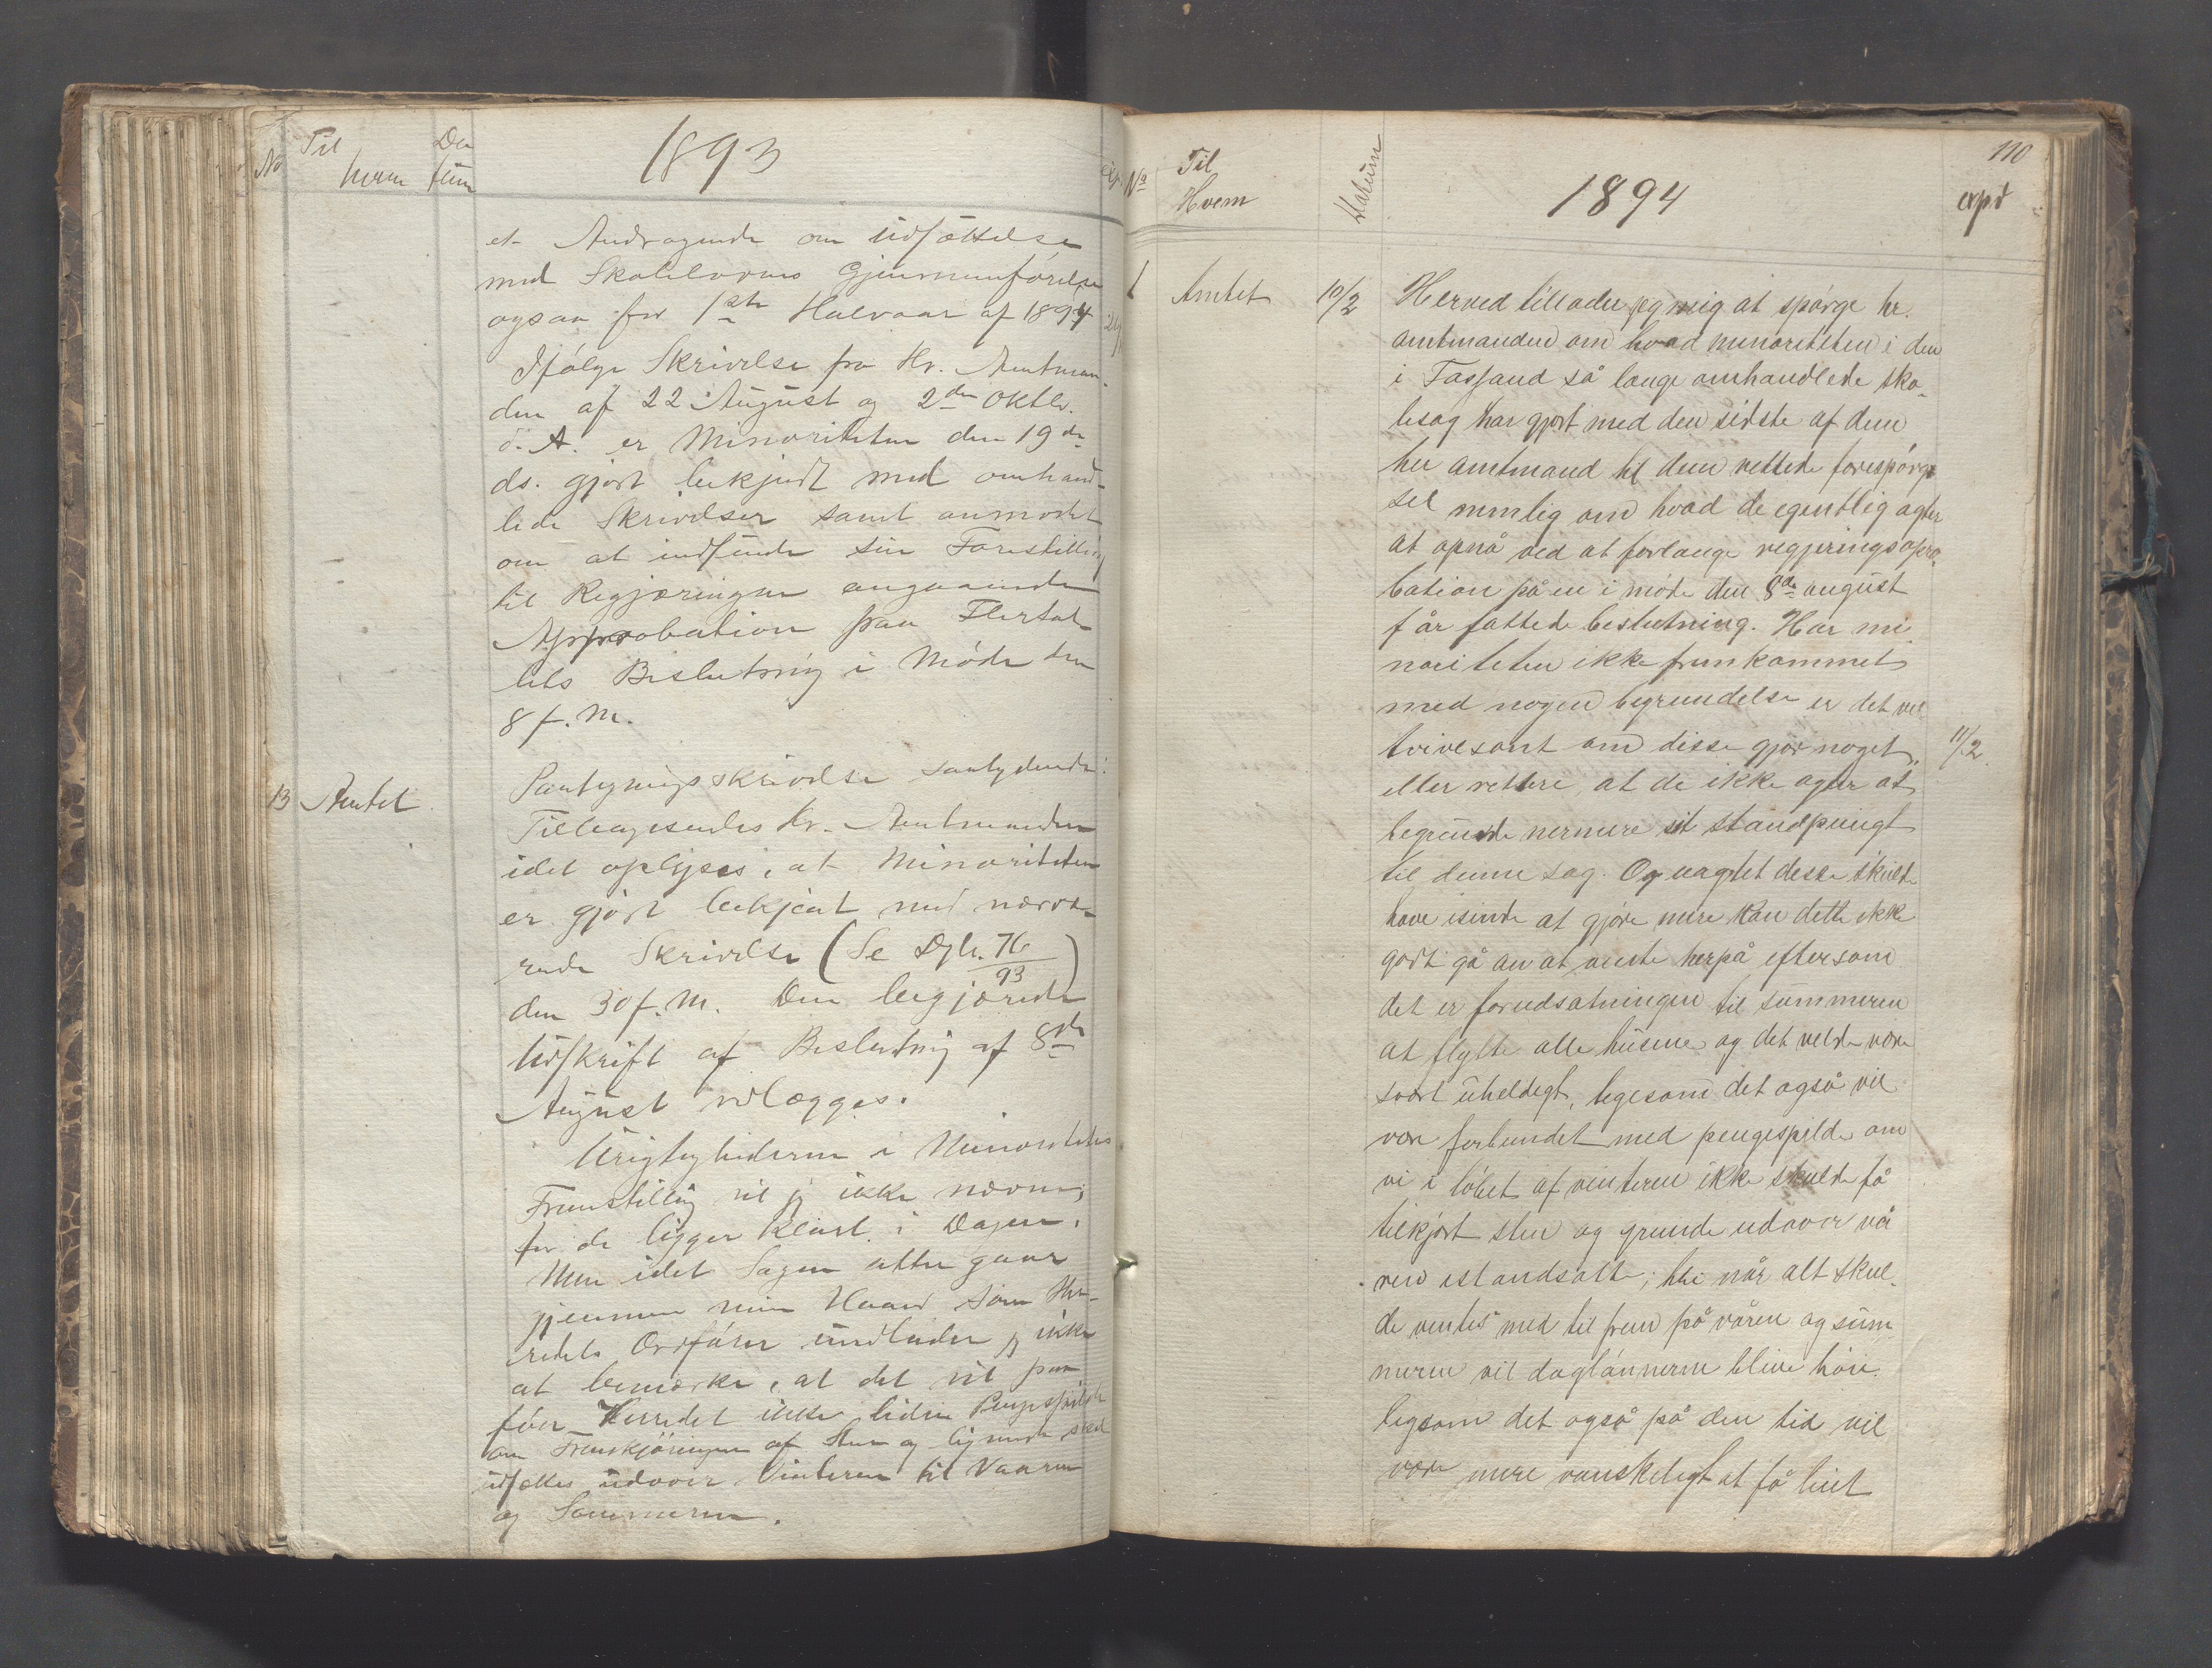 No Til hvem Datum
1893
et Andragende om Udsættelse
med Skolelovens Gjennemførelse
ogsaa for 1ste Halvaar af 1894
Ifølge Skrivelse fra Hr. Amtman-
den af 22 August og 2den Oktbr.
d. A. er Minoriteten den 19de
ds. gjort bekjendt med omhand-
lede Skrivelser samt anmodet
om at indsende sin Forestilling
til Regjæringen angaaende
Approbation paa Flertal-
lets Beslutning i Møde den
8 f. M.
13 Amtet
Paategningsskrivelse saalydende:
Tilbagesendes Hr. Amtmanden
idet oplyses, at Minoriteten
er gjort bekjent med nærvæ-
rende Skrivelse (Se Dgb. 76/93)
den 30 f. M. Den begjærede
Udskrift af Beslutning af 8de
August vedlægges.
Urigtighederne i Minoritetens
Fremstilling vil jeg ikke nævne,
for de ligger klart i Dagen.
Men idet Sagen atter gaar
gjennem min Haand som Her-
redets Ordfører undlader jeg ikke
at bemærke, at det vil paa
føre Herredet ikke liden Pengespilde
om Fremkjøringen af Sten og lignende skal
udsættes udover Vinteren til Vaaren
og Sommeren.
No Til Hvem Datum
1894
110
exp
1 Amtet 10/2
Herved tillader jeg mig at spørge hr.
amtmanden om hvad minoriteten i den
i Fassand så længe omhandlede sko-
lesag har gjort med den sidste af dem
her amtmand til dem rettede forespørg-
sel nemlig om hvad de egentlig agter
at opnå ved at forlange regjeringsapro-
bation på en i møde den 8de august
f år fattede beslutning. Har mi
noriteten ikke fremkommet
med nogen begrundelse er det vel
tvivlsomt om disse gjør noget,
11/2
eller rettere, at de ikke agter at
begrunde nermere sit standpungt
til denne sag. Og uagtet desse skulde
have isinde at gjøre mere kan dette ikke
godt gå an at vente herpå eftersom
det er forudsatningen til summeren
at flytte alle husene og det velde være
svært uheldigt, ligesom det også vil
vær forbundet med pengespilde om
vi i løbet af vinteren ikke skulde få
tilkjørt sten og grunde udover vå
ren istandsatte; thi når alt skul-
de ventes med til frem på våren og sum
meren vil daglønnerne blive høie
legsom det også på den tid vil
være mere vanskeligt at få leiet